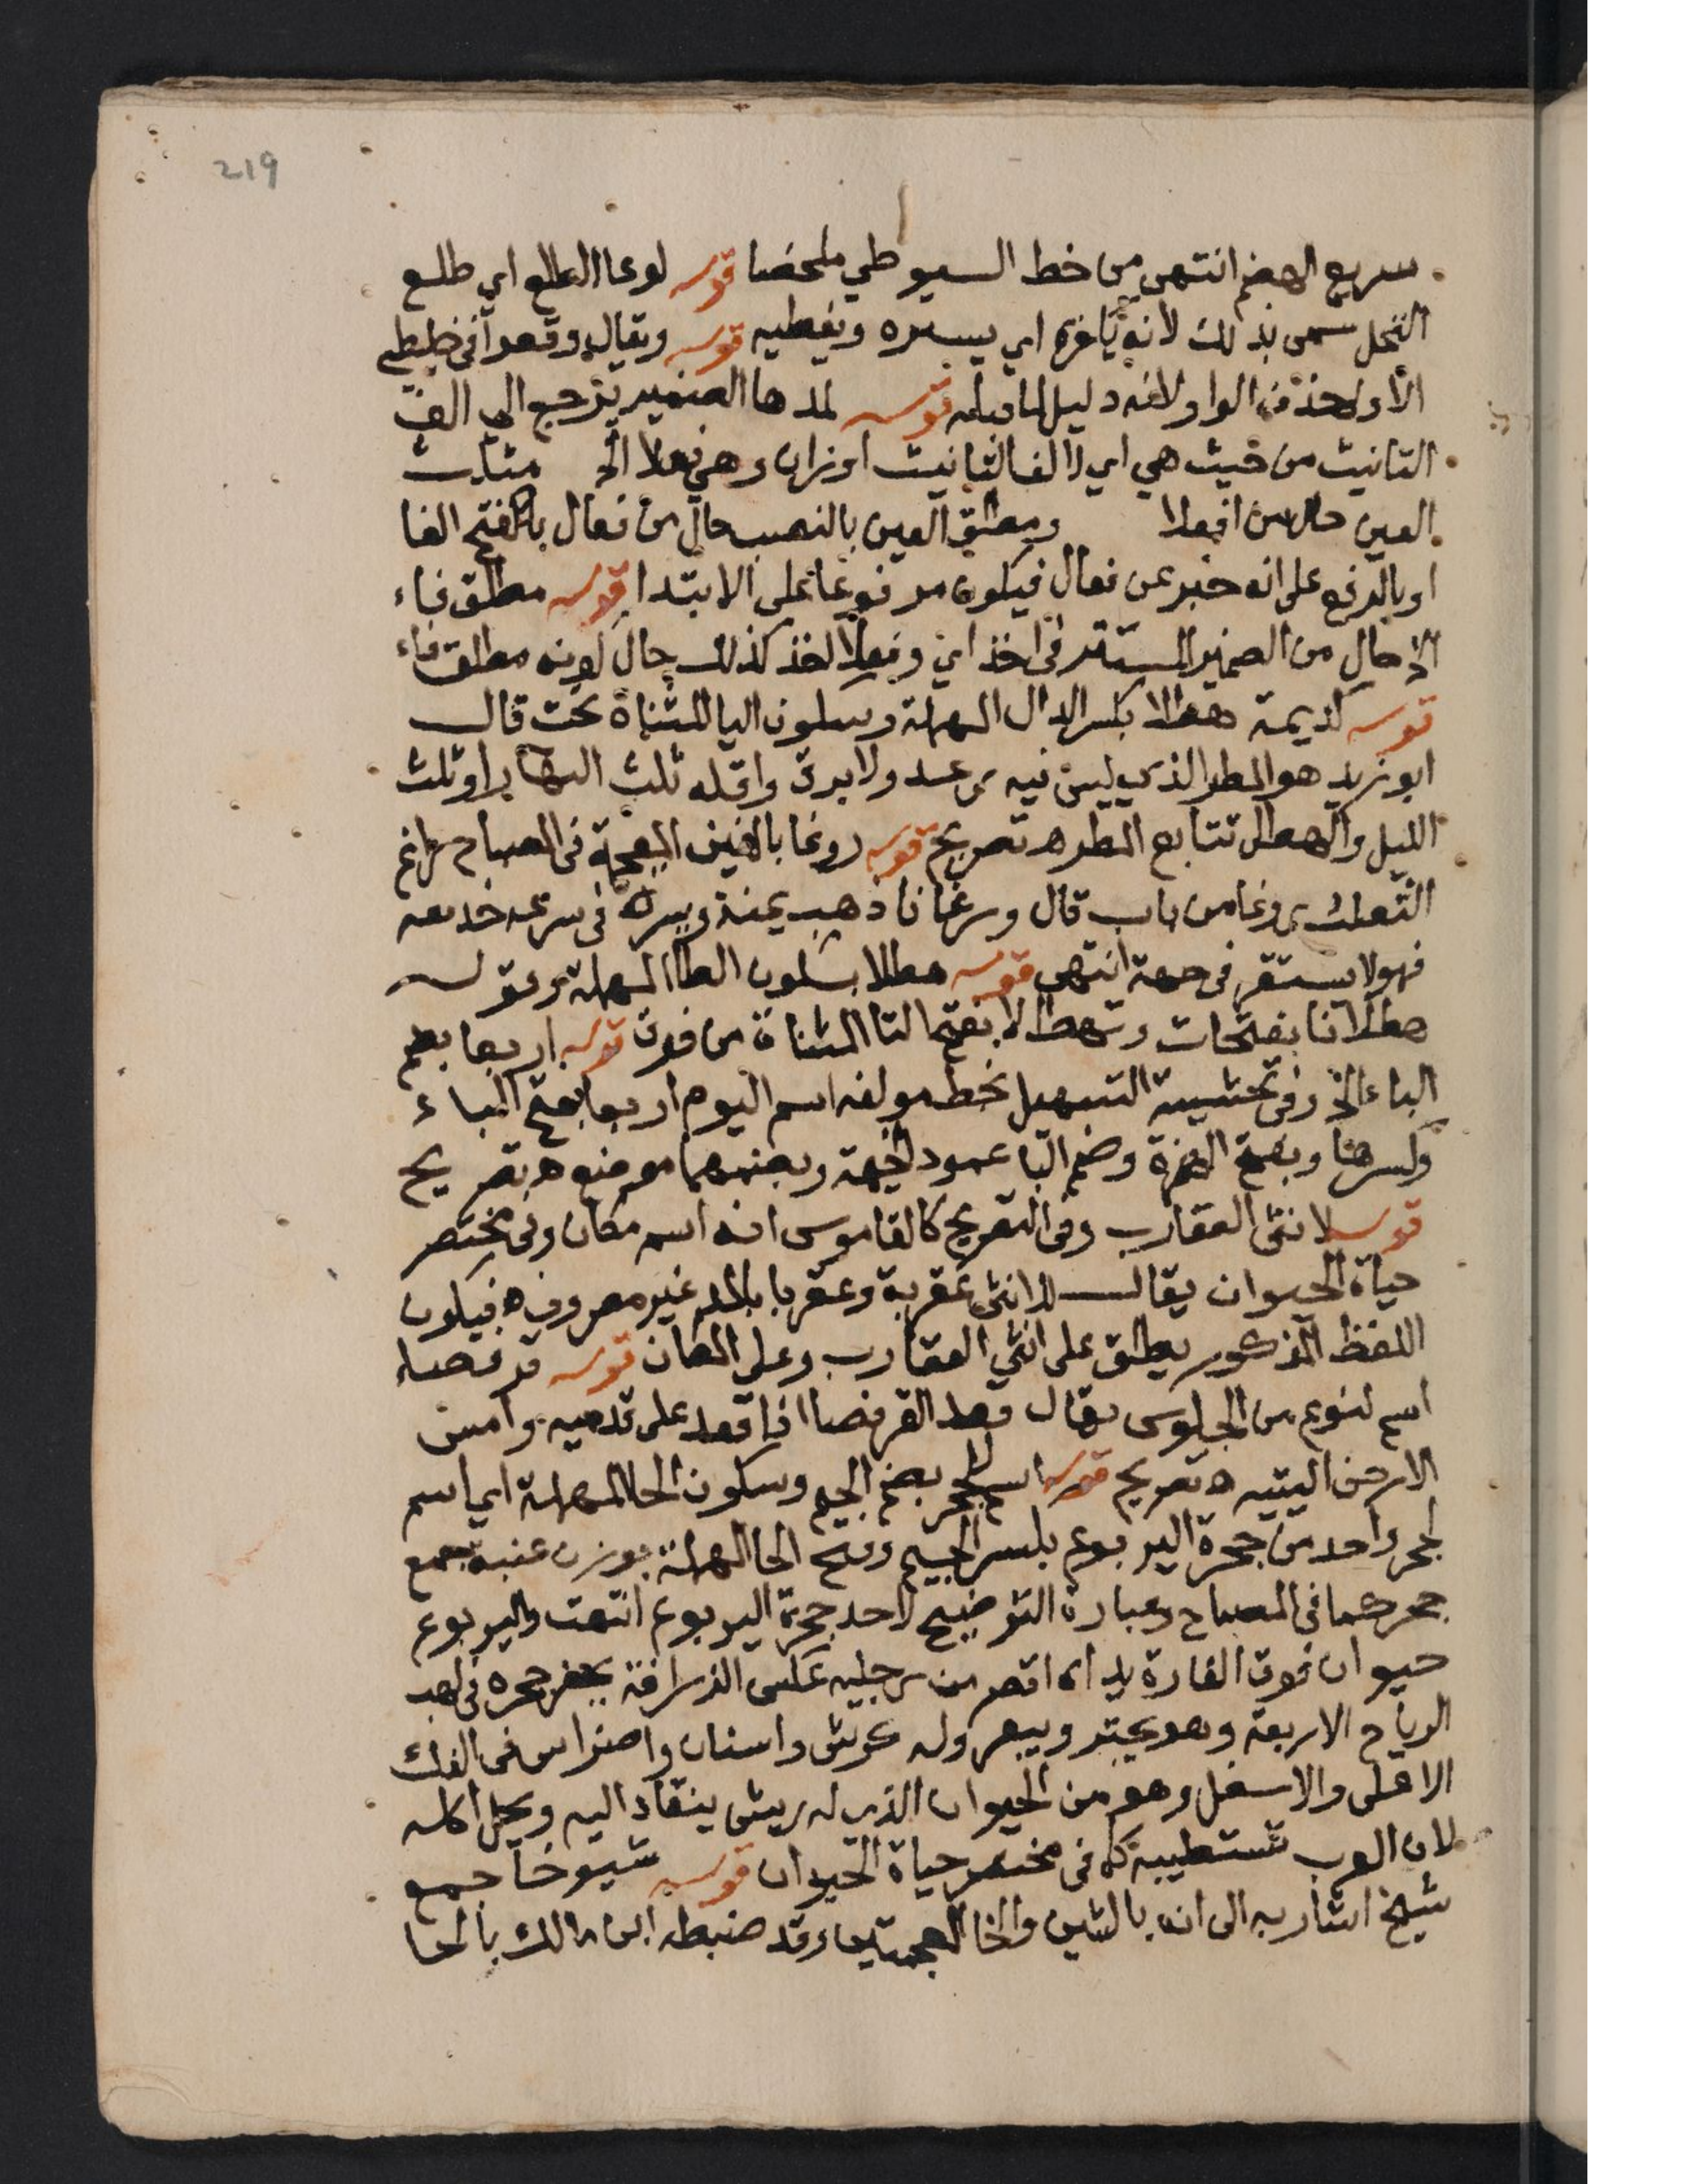 219
سريع الهضم انتهى من خط السيوطي ملخصا قوله لوعا الطلع اي طلع
النخل سمى بذلك لانه اي يستره ويغطيه قوله ويقال وقعوا في خليطى
الاول حذف الواو لانه دليل لما قبله قوله لمدها الضمير يرجع الى الف
التانيث من حيث هي اي لالف التانيث اوزان وهي فعلا الخ مثلث
العين حال من افعلا ومطلق العين بالنصب حال من فعال بالفتح الفا
او بالرفع على انه خبر عن فعال فيكون مرفوعا على الابتدا قوله مطلق فاء
الخ حال من الضمير المستتر في اخذ اي وفعلا اخذ كذلك حال كونه مطلق فاء
قوله كديمة هطلا بكسر الدال المهملة وسكون اليا المثناة تحت قال
ابو زيد هو المطر الذي ليس فيه رعد ولا برق واقله ثلث النهار او ثلث
الليل والهطل تتابع المطر ه تصريح قوله روغا بالغين المعجمة في المصباح راغ
الثعلب روغا من باب قال وروغانا ذهب يمنة ويسرة في سرعه خديعه
فهو لا يستقر في جهة انتهى قوله هطلا بسكون الطا المهملة وقوله
هطلانا بفتحات وتهطالا بفتح التا المثناة من فوق قوله اربعا بضم
الباء الخ وفي تحشية التسهيل بخط مولفه اسم اليوم اربعا بفتح الباء
وكسرها وبضم الهمزة وضم البا عمود الخيمة وبضمهما موضع ه تصريح
قوله لانثى العقارب وفي التصريح كالقاموس انه اسم مكان وفي مختصر
حياة الحيوان يقال للانثى عقربة وعقربا بالمد غير مصروف ه فيكون
اللفظ المذكور يطلق على انثى العقارب وعلى المكان قوله قرفصاء
اسم لنوع من الجلوس يقال قعد القرفصا اذا قعد على قدميه وامس
الارض اليتيه ه تصريح قوله اسم لجحر بضم الجيم وسكون الحا المهملة اي اسم
لجحر واحد من جحرة اليربوع بكسر الجيم وفتح الحا المهملة بوزن عنبة جمع
جحر كما في المصباح وعبارة التوضيح لاحد جحرة اليربوع انتهت واليربوع
حيوان فوق الفارة يداه اقصر من رجليه عكس الزرافة يحفر جحره في مهب
الرياح الاربعة وهو يجتر ويبعر وله كرش واسنان واضراس في الفك
الاعلى والاسفل وهو من الحيوان الذي له ريش ينقاد اليه ويحل اكله
لان العرب تستطيبه كما في مختصر حياة الحيوان قوله شيوخا جمع
شيخ اشار به الى انه بالشين والخا المعجمتين وقد ضبطه ابن مالك بالحا